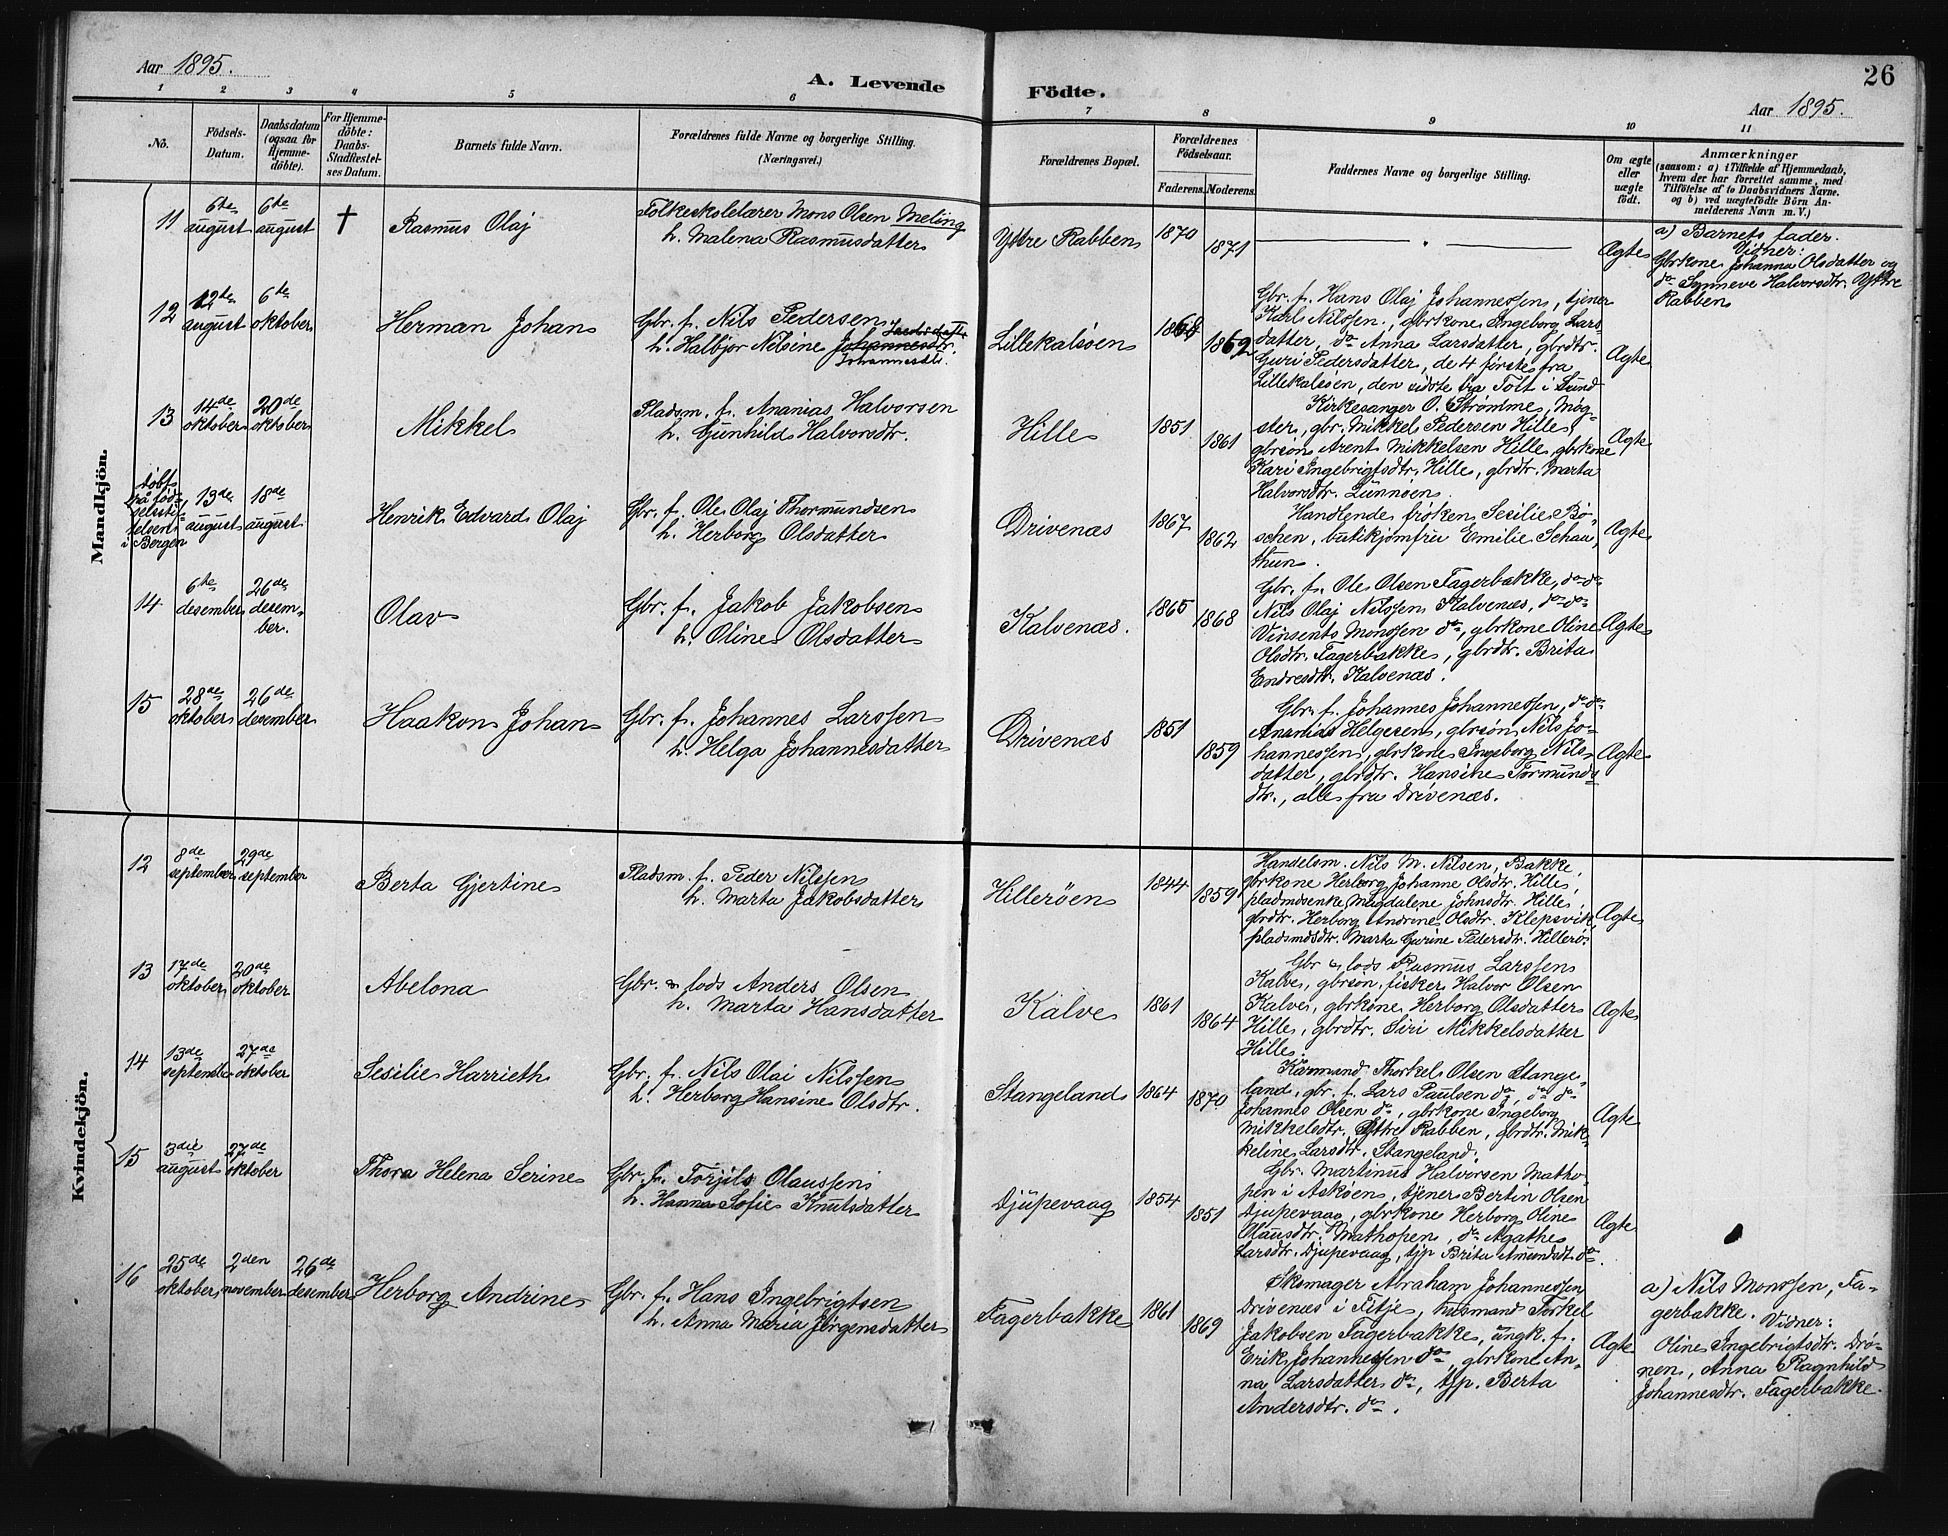 Aar 1895.
A. Levende
Födte.
26
Aar 1895.
1 2 3 4 5 6 7 8 9 10 11
No.
Födsels-
Datum.
Daabsdatum
(ogsaa for
Hjemme-
döbte).
For Hjemme-
döbte:
Daabs-
Stadfæstel-
ses Datum.
Barnets fulde Navn.
Forældrenes fulde Navne og borgerlige Stilling.
(Næringsvei.)
Forældrenes Bopæl.
Forældrenes
Födselsaar.
Faderens. Moderens.
Faddernes Navne og borgerlige Stilling.
Om ægte
eller
uægte
födt.
Anmærkninger
(saasom: a) i Tilfælde af Hjemmedaab,
hvem der har forrettet samme, med
Tilföielse af to Daabsvidners Navne.
og b) ved uægtefödte Börn An-
melderens Navn m. V.)
Mandkjön.
11
6te
august
6te
august
†
Rasmus Olaj
Folkeskolelærer Mons Olsen Meling
h. Malena Rasmusdatter
Yttre Rabben
1870
1871
"
Ægte
a) Barnets fader.
Vidner:
Gbrkone Johanna Olsdatter og
do Synneve Halvorsdtr. Yttre
Rabben
12
12te
august
6te
oktober
Herman Johan
Gbr. f. Nils Pedersen
h. Halbjor Nilsene Johannesdtr.
Johannesdtr.
Lillekalsöen
1869
Gbr. f. Hans Olaj Johannessen, tjener
Karl Nilssen, gbrkone Ingeborg Lars-
datter, do Anna Larsdatter, gbrdtr.
Guri Pedersdatter, de 4 förste fra
Lillekalsöen, den sidste fra Tolt i Sund
Ægte
13
14de
oktober
20de
oktober
Mikkel
Pladsm. f. Ananias Halvorsen
h. Gunhild Halvorsdtr.
Hille
1851
1861
Kirkesanger O. Strømme, Møg-
ster, gbr. Mikkel Pedersen Hille,
gbrsön Arent Mikkelsen Hille, gbrkone
Kari Ingebrigtsdtr. Hille, gbrdtr. Marta
Halvorsdtr. Lunnöen.
Ægte
Döbt
på föd-
selssti-
telsen
i Bergen
13de
august
18de
august
Henrik Edvard Olaj
Gbr. f. Ole Olaj Thormundsen
h. Herborg Olsdatter
Drivenæs
1867
1862
Handlende fröken Sesilie Bö-
schen, butikjomfru Emilie Schau,
thun.
Ægte
14
6te
desember
26de
desem-
ber.
Olav
Gbr. f. Jakob Jakobsen
h. Oline Olsdatter
Kalvenæs.
1865
1868
Gbr. f. Ole Olsen Fagerbakke, do do
Nils Olaj Nilssen Kalvenæs, do do
Vinsents Monssen do, gbrkone Oline
Olsdtr. Fagerbakke, gbrdtr. Brita
Endresdtr. Kalvenæs.
Ægte
15
28de
oktober
26de
desember
Haakon Johan
Gbr. f. Johannes Larssen
h. Helga Johannesdatter
Drivenæs
1851
1859
Gbr. f. Johannes Johannessen, do do
Ananias Helgesen, gbrsön Nils Jo-
hannessen, gbrkone Ingeborg Nils-
datter, gbrdtr. Hansine Tormunds-
dtr., alle fra Drivenæs.
Ægte
Kvindekjön.
12
8de
september
29de
september
Berta Gjertine
Pladsm. f. Peder Nilssen
h. Marta Jakobsdatter
Hilleröen
1844
1859
Handelsm. Nils M. Nilsen, Bakke,
gbrkone Herborg Johanne Olsdtr. Hille,
pladsmdsenke Magdalene Johnsdtr. Hille,
gbrdtr. Herborg Andrine Olsdtr. Klepsvik,
pladsmdsdtr. Marta Gurine Pedersdtr. Hillerö
Ægte
13
17de
oktober
20de
oktober
Abelona
Gbr. & lods Anders Olsen
h. Marta Hansdatter
Kalve
1861
1864
Gbr & lods Rasmus Larssen
Kalve, gbrsön, fisker Halvor Olsen
Kalve, gbrkone Herborg Olsdatter
Hille, gbrdtr. Siri Mikkelsdatter
Hille.
Ægte
14
13de
september
27de
oktober
Sesilie Harrieth
Gbr. f. Nils Olai Nilssen
h. Herborg Hansine Olsdtr.
Stangeland
1864
1870
Kårmand Thorkel Olsen Stange-
land, gbr. f. Lars Paulsen do, do do
Johannes Olsen do, gbrkone Ingeborg
Mikkelsdtr. Yttre Rabben, gbrdtr. Mik-
keline Larsdtr. Stangeland.
Ægte
15
3die
august
27de
oktober
Thora Helena Serine
Gbr. f. Torjils Olaussen
h. Hanna Sofie Knutsdatter
Djupevaag
1854
1851
Gbr. Martinus Halvorsen Matho-
pen i Asköen, tjener Bertin Olsen
Djupevaag, gbrkone Herborg Oline
Olausdtr. Mathopen, do Agathe
Larsdtr. Djupevaag, tjp Brita Amundsdt. do.
Ægte
16
25de
oktober
2den
november
26de
desember
Herborg Andrine
Gbr. f. Hans Ingebrigtsen
h. Anna Maria Jörgensdatter
Fagerbakke
1861
1869
Skomager Abraham Johannessen
Drivenæs i Fitje, husmand Torkel
Jakobsen Fagerbakke, ungk. f.
Erik Johannessen do, gbrkone An-
na Larsdatter do, tjp. Berta
Andersdtr. do.
Ægte
a) Nils Monssen, Fa-
gerbakke. Vidner:
Oline Ingebrigtsdtr. Drö-
nen, Anna Ragnhild
Johannesdtr. Fagerbakke.